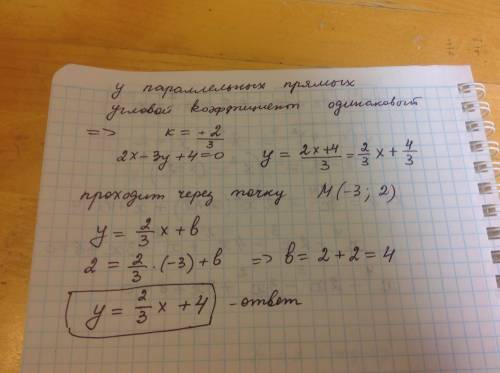 у параллельных прямых
угловой коэффициент одинаковый
=> к = + 2/3
2x-3y+4=0 y = (2x+4)/3 = 2/3 x + 4/3
проходит через точку М(-3; 2)
y = 2/3 x + в
2 = 2/3 · (-3) + в => в = 2 + 2 = 4
y = 2/3 x + 4 - ответ